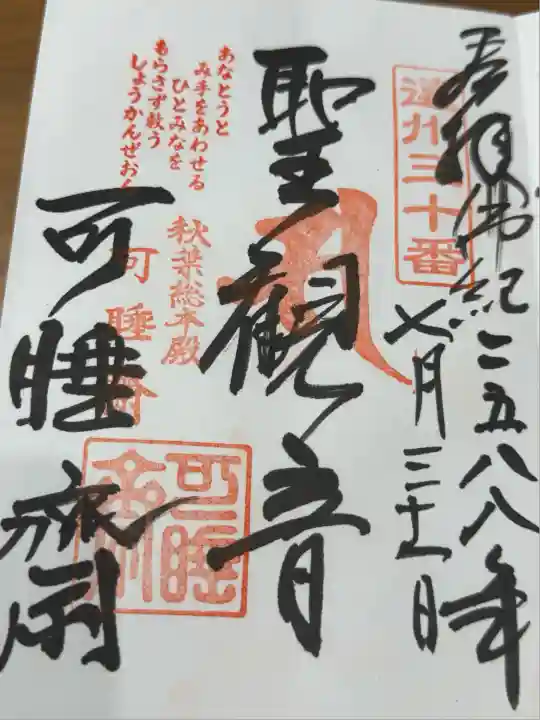 奉拝 佛紀二五八八年
七月三十一日
遠州三十番
聖観音
あなとうと
み手をあわせる
ひとみなを
もらさず救う
しょうかんぜおん
秋葉総本殿
可睡斎
可睡齋
可睡